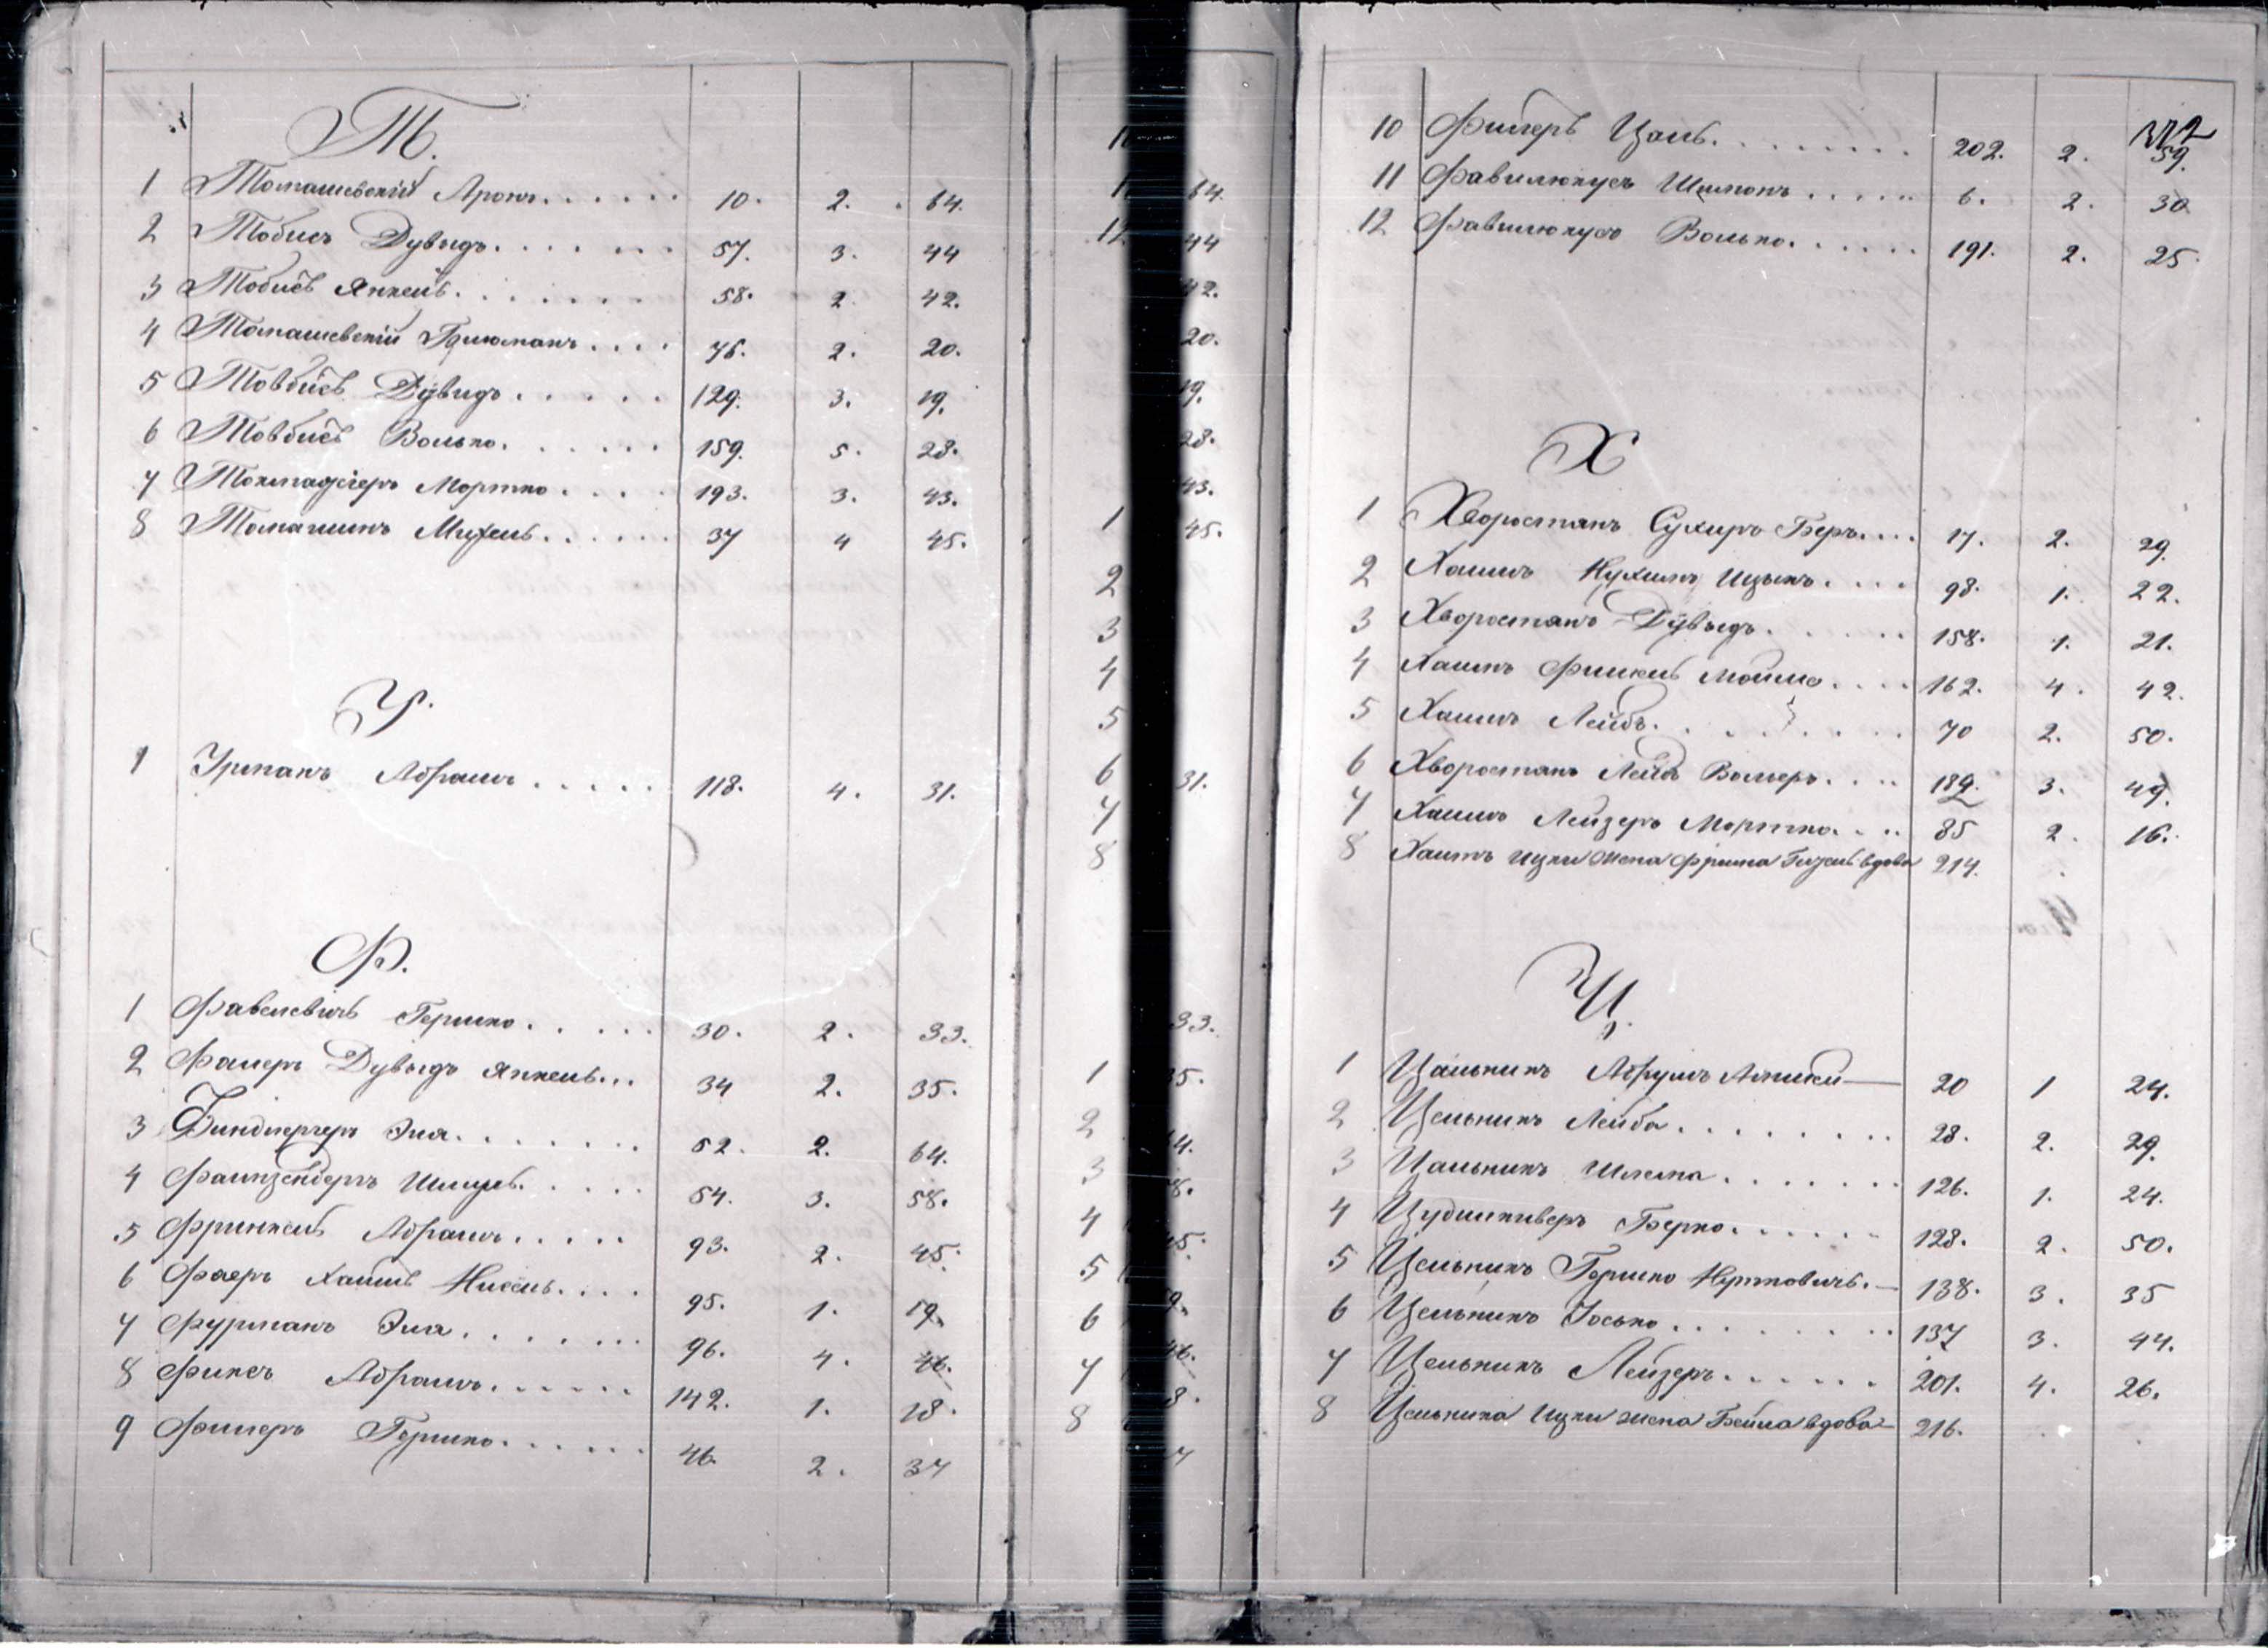 Т.
1 Томашевскій Аронъ. 10. 2. 64.
2 Тобисъ Дувыдъ. 57. 3. 44
3 Тобисъ Янкель. 58. 2 42.
4 Томашевскій 76. 2. 20.
5 Товбисъ Дувидъ 129. 3. 19.
6 Товбисъ Волько. 159. 5. 28.
7 Мортко 193. 3. 43.
8 Михель. 37 4 45.
У.
1 Урманъ Абрамъ 118. 4. 31.
Ф.
1 Фавелевичъ Гершко. 30. 2. 33.
2 Фаеръ Дувыдъ Янкель. 34 2. 35.
3 Эля. 52. 2. 64.
4 Шмуль. 54. 3. 58.
5 Френкель Абрамъ 93. 2. 45.
6 Фаеръ Хаимъ Нисель. 95. 1. 19.
7 Фурманъ Эля. 96. 4. 46.
8 Фуксъ Абрамъ. 142. 1. 18.
9 Фишеръ Гершко. 46. 2. 37
312
10 Фишеръ Цаль. 202. 2. 59.
11 Фавилюкусъ Шимонъ 6. 2. 30
12 Фавилюкусъ Волько. 191. 2. 25.
Х
1 Хворостанъ Сухеръ Беръ. 17. 2. 29.
2 Хаимъ Нухимъ Ицыкъ. 98. 1. 22.
3 Хворостанъ Дувыдъ. 158. 1. 21.
4 Хаимъ Фишель Мошко 162. 4. 42.
5 Хаимъ Лейбъ. 70 2. 50.
6 Хворостанъ Лейбъ 189. 3. 49.
7 Хаимъ Лейзеръ Мортко. 85 2. 16.
8 Хаимъ Ицки жена вдова 214.
Ц.
1 Цальникъ Абрумъ 20 1 24.
2 Цельникъ Лейба 28. 2. 29.
3 Цальникъ Шлема 126. 1. 24.
4 Берко. 128. 2. 50.
5 Цельникъ Гершко 138. 3. 35
6 Цельникъ Іосько 137 3. 44.
7 Цельникъ Лейзеръ 201. 4. 26.
8 Цельника Ицки жена Бейла вдова 216.